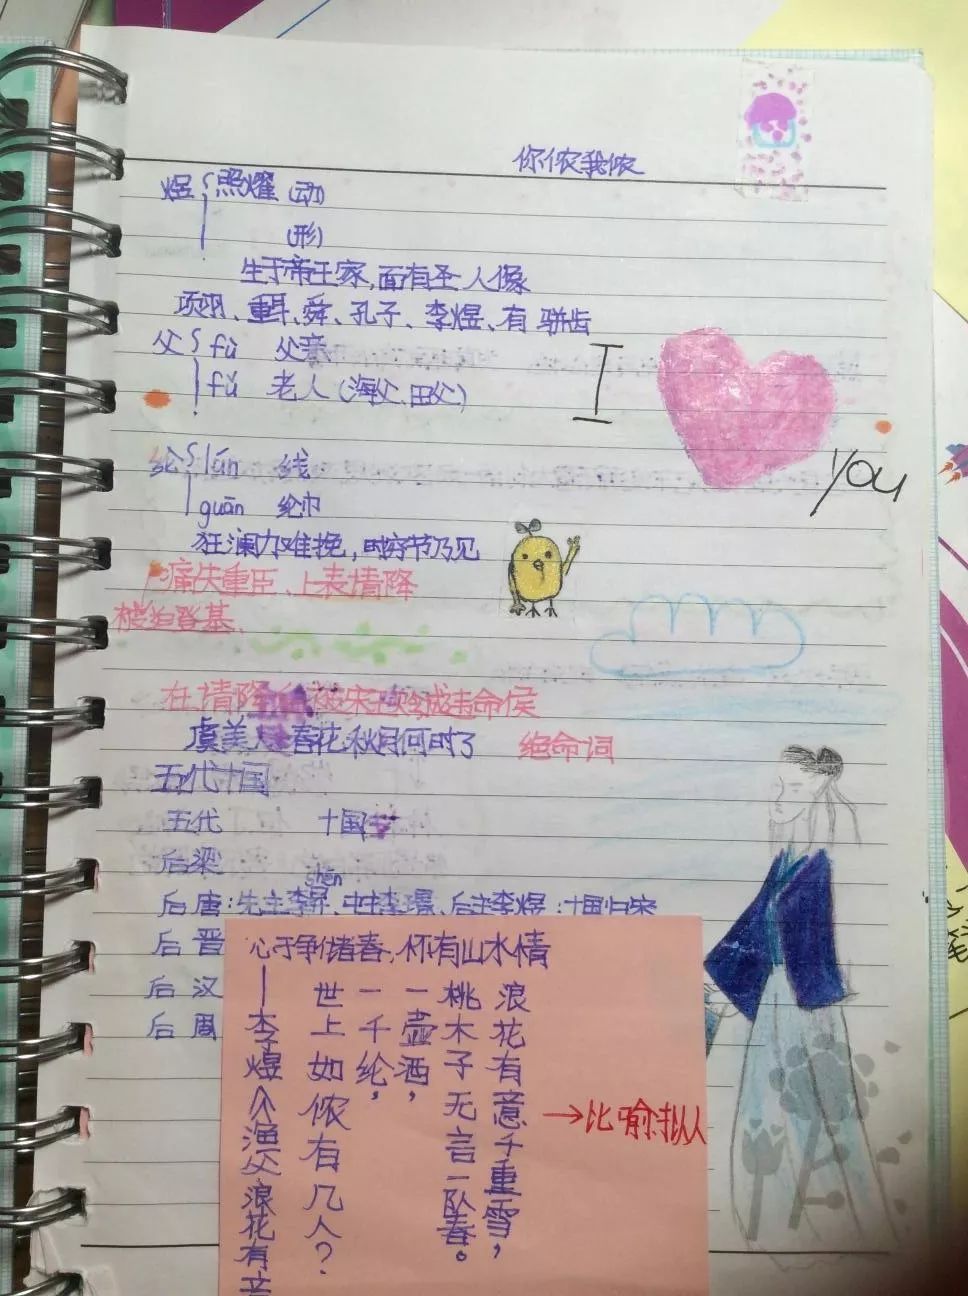 你侬我侬
煜 照耀 (动)
(形)
生于帝王家,面有圣人像
项羽、重耳、舜、孔子、李煜、有骈齿
父 fù 父亲
fǔ 老人(渔父、田父)
I
YOU
纶 lún 线
guān 纶巾
狂澜力难挽,时穷节乃见
痛失重臣、上表情降
被迫登基.
在请降 被宋 命侯
虞美 春花秋月何时了 绝命词
五代十国
五代 十国
后梁
shēn
后唐:先主李昪、中主李璟、后主李煜:十国归宋
后晋
后汉
后周
心于争储春,怀有山水情
浪花有意千重雪,
桃木子无言一队春。
一壶酒,
一千纶,
世上如侬有几人?
—李煜《渔父浪花有意
→比喻拟人